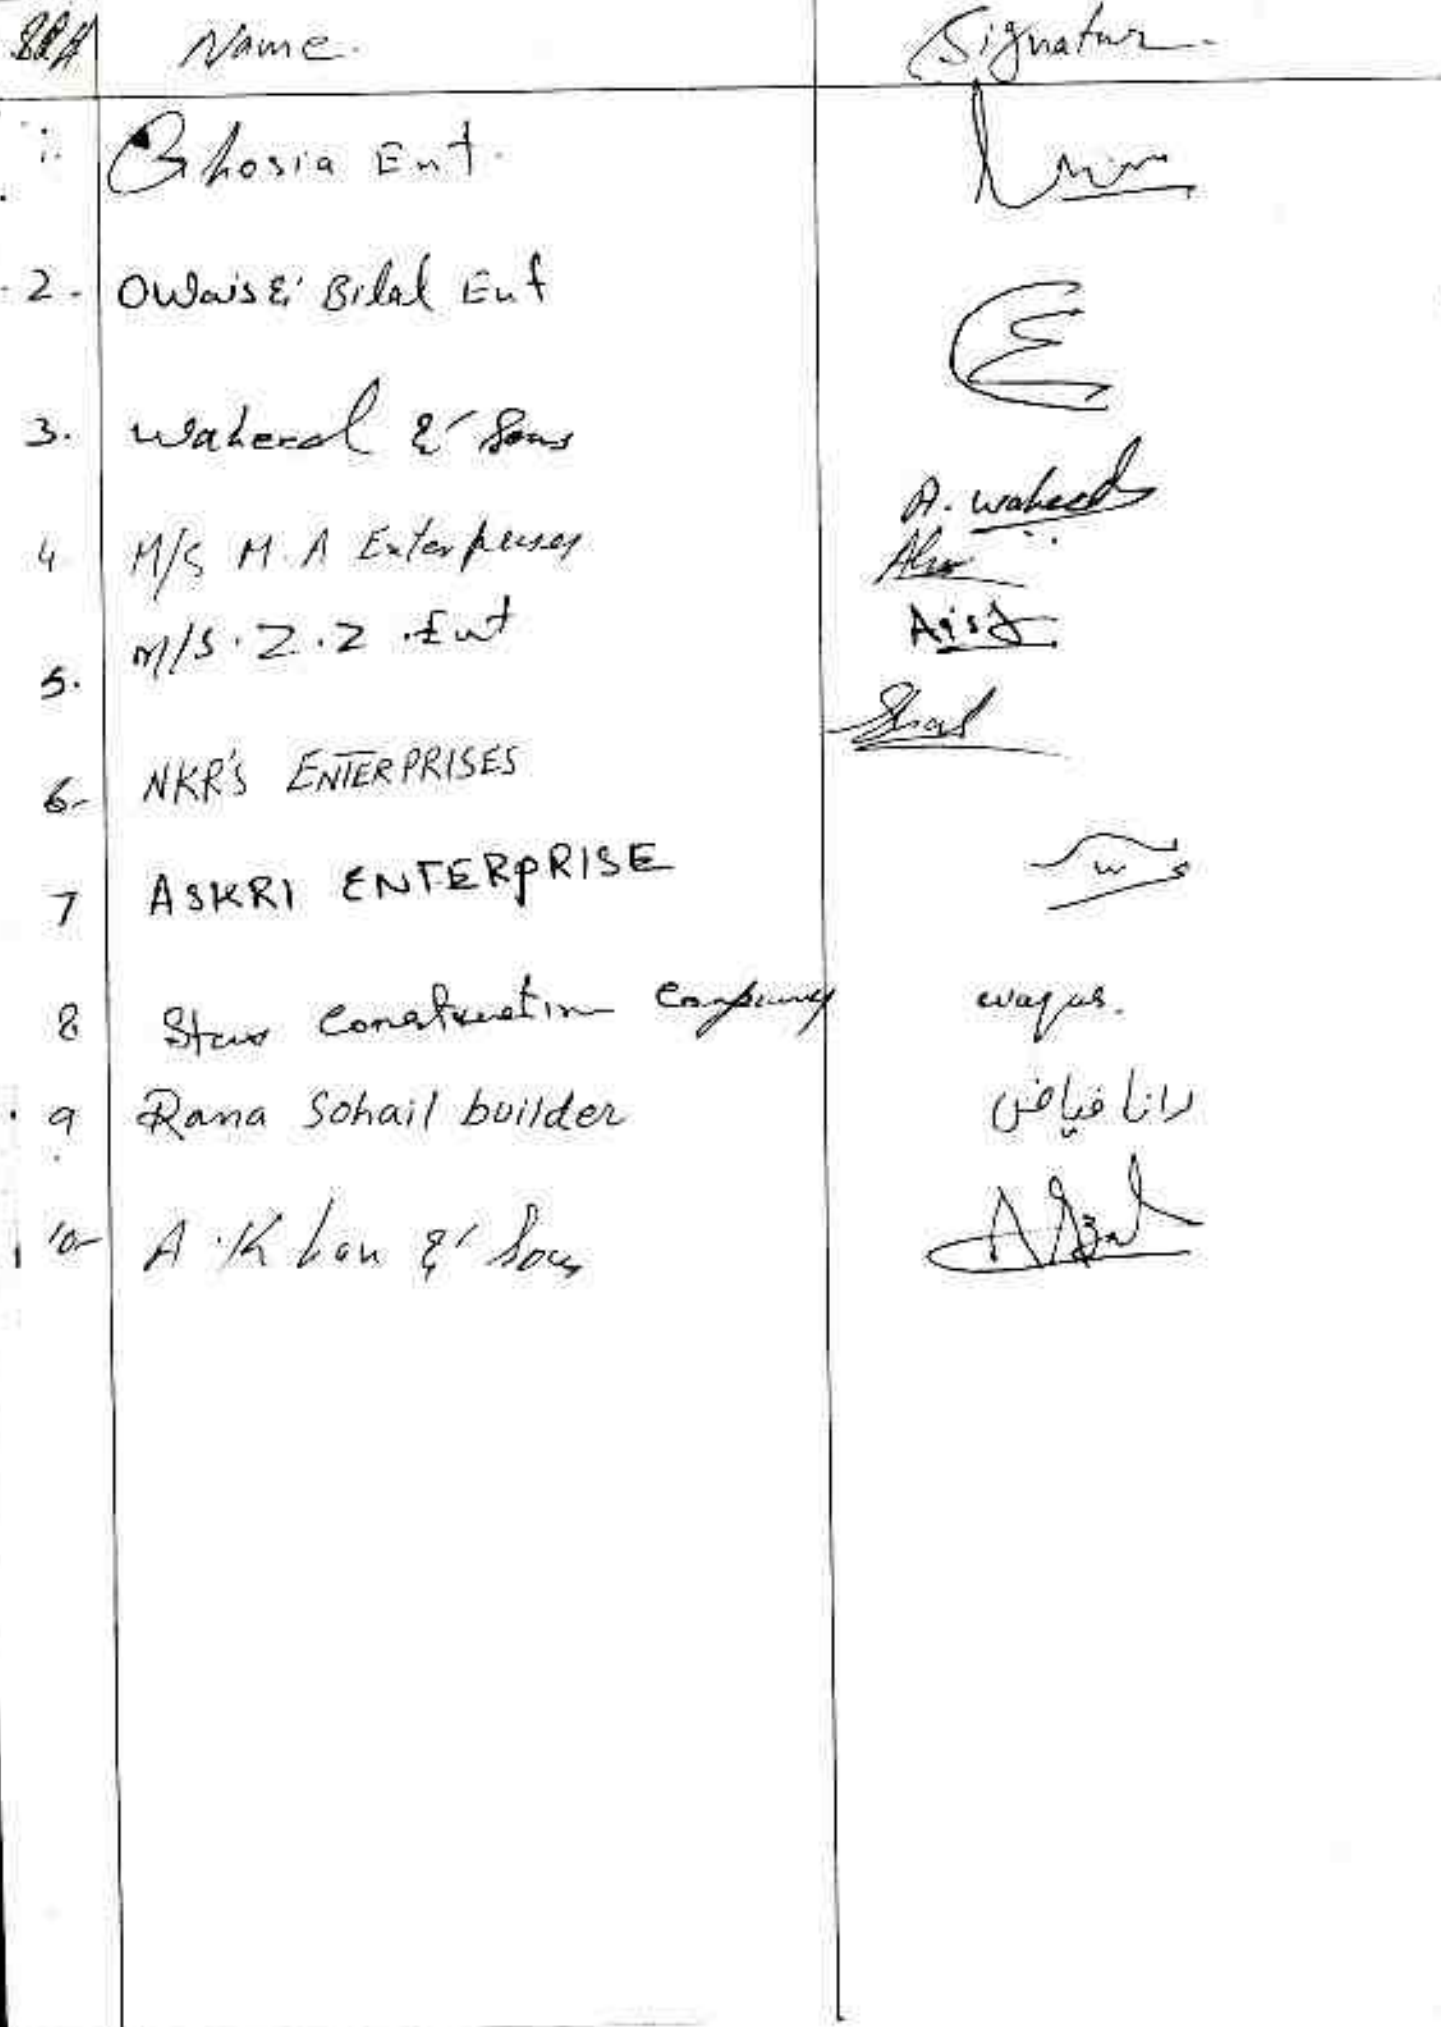 Sr# Name. Signature.
1. Ghosia Ent.
2. Owais & Bilal Ent
3. Waheed & Sons
A. waheed
4 M/S M.A Enterprises
M/S. Z.Z. Ent
5.
6- NKR'S ENTERPRISES
7 ASKRI ENTERPRISE
8 Star Construction Company waqas.
9 Rana Sohail builder رانا فیاض
10- A. Khan & Sons